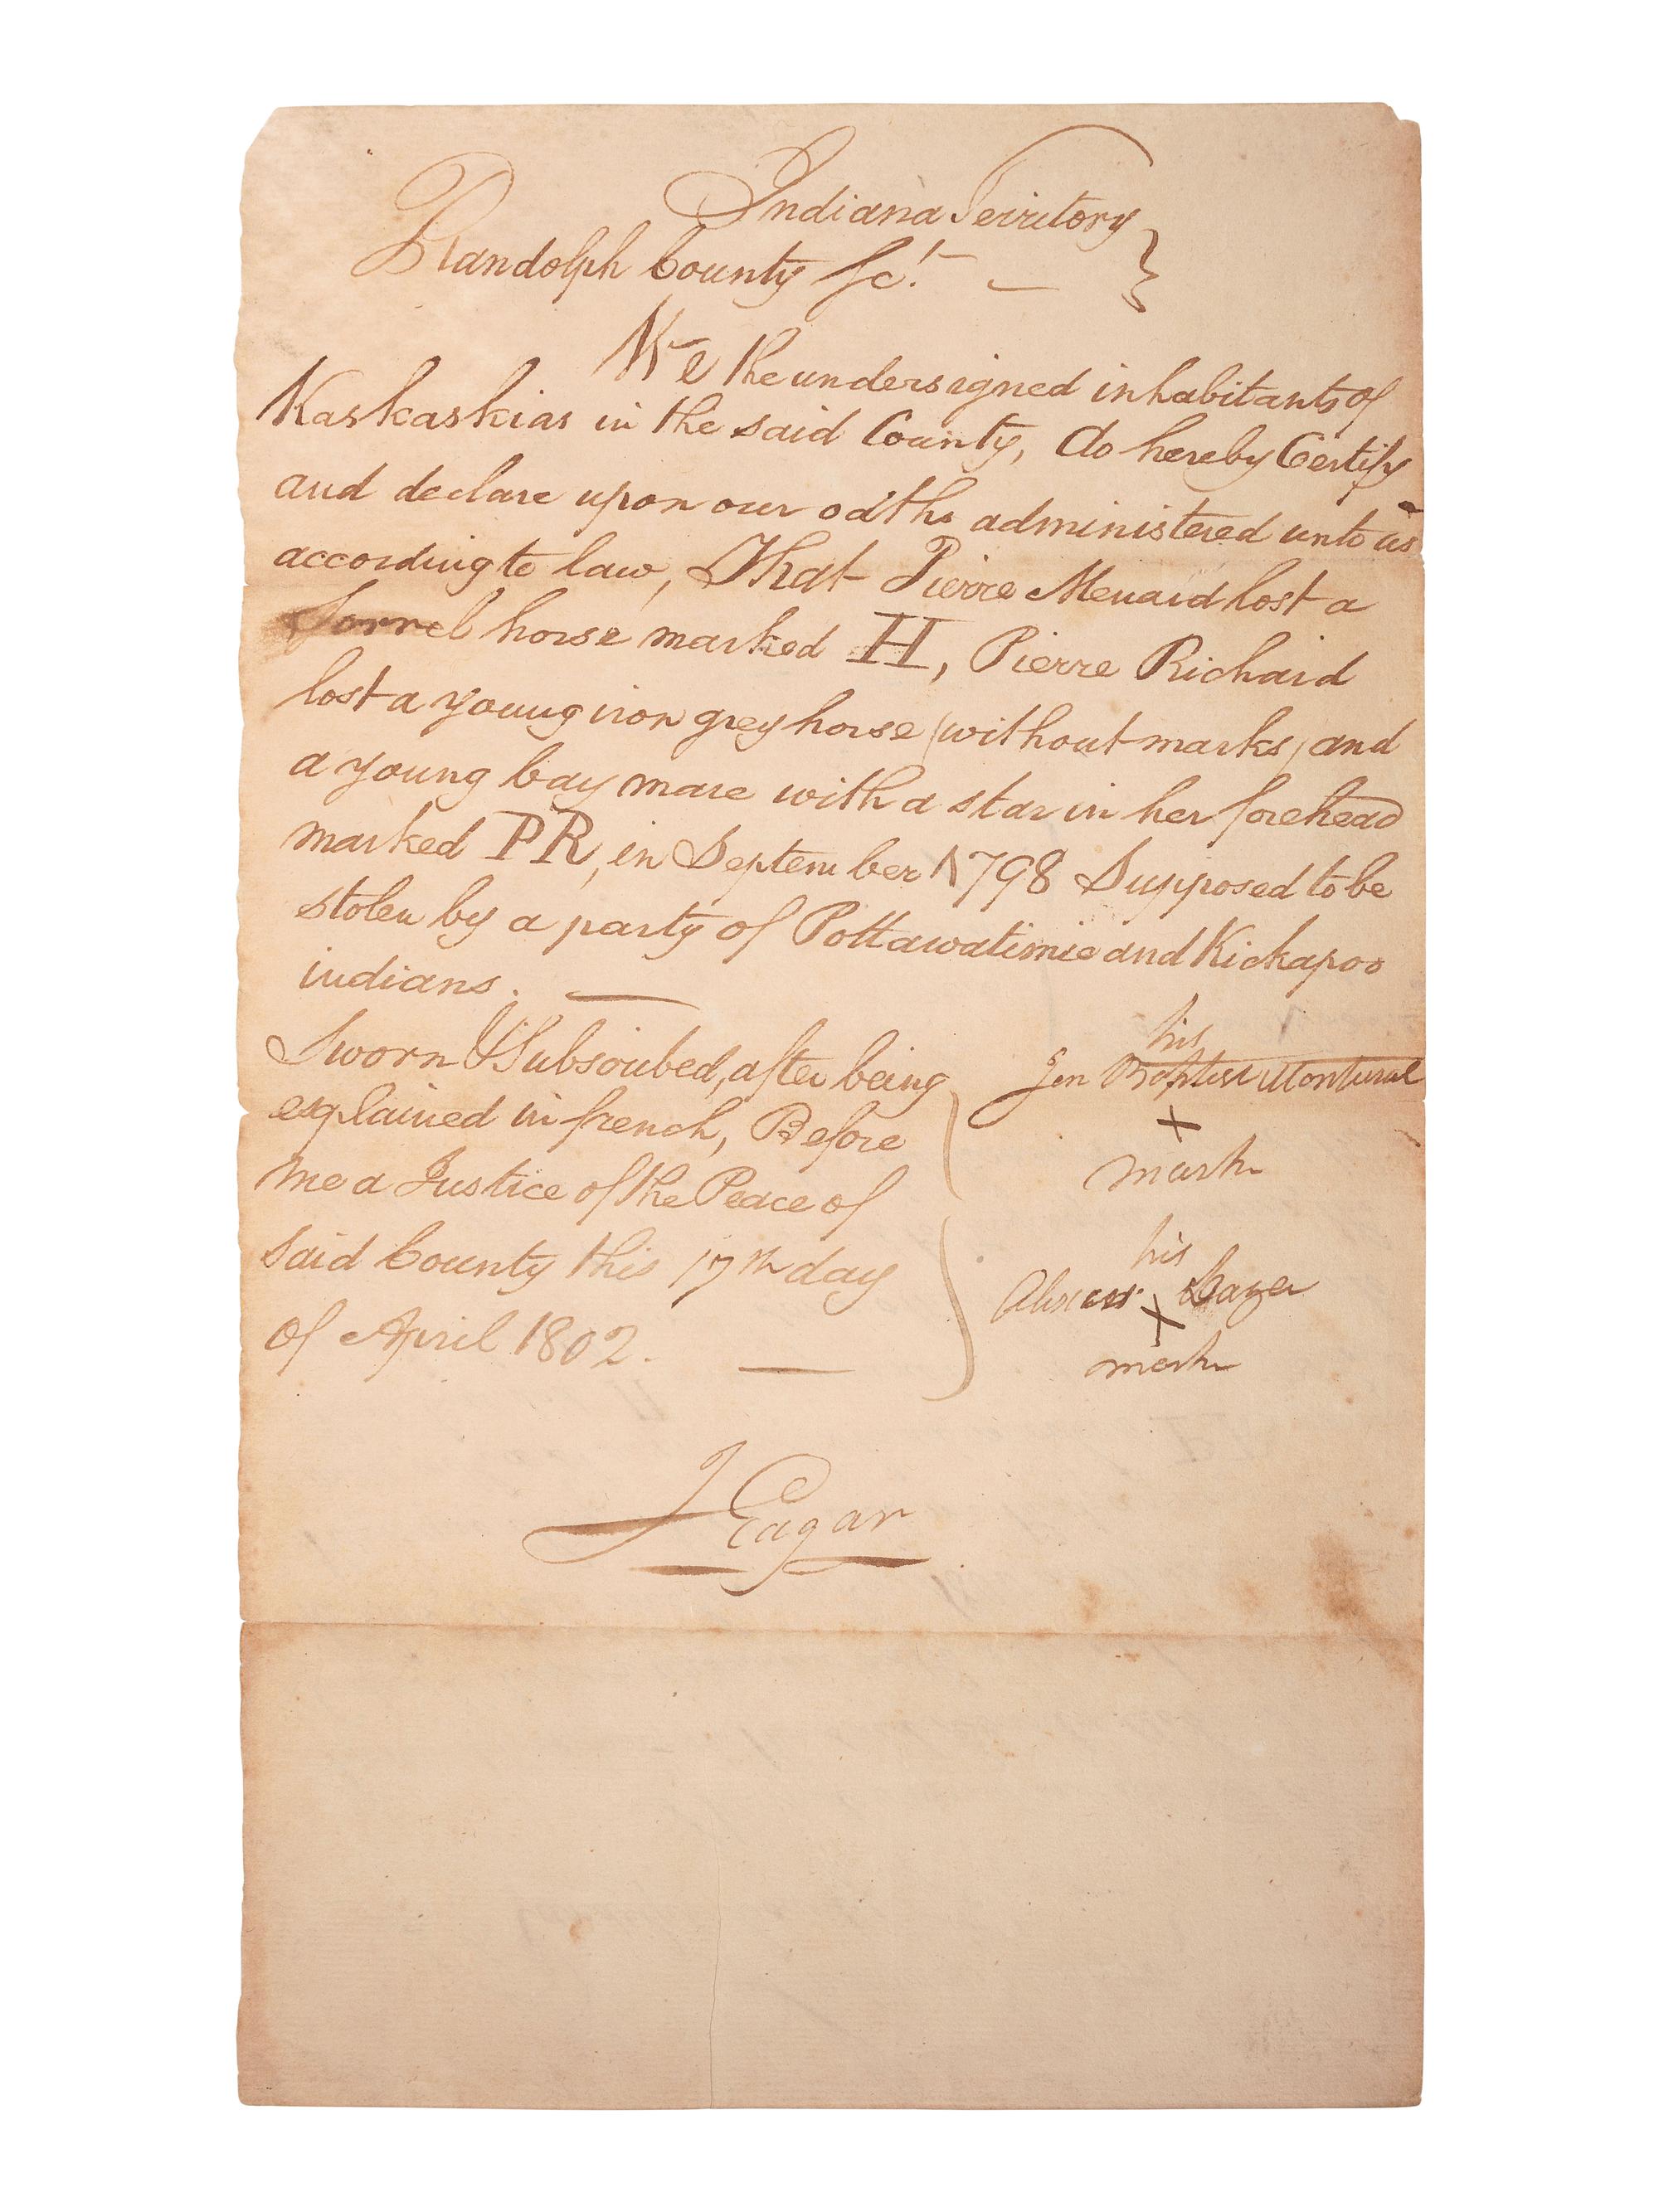 Indiana Territory
Randolph County Sc.t
We the undersigned inhabitants of
Kaskaskias in the said County, do hereby Certify
and declare upon our oaths administered unto us
according to law, That Pierre Menard lost a
Sorrel horse marked H, Pierre Richard
lost a young iron grey horse (without marks) and
a young bay mare with a star in her forehead
marked PR, in September 1798 Supposed to be
stolen by a party of Pottawatimie and Kickapoo
indians.
Sworn & Subscribed, after being
explained in french, Before
me a Justice of the Peace of
said County this 17th day
of April 1802.
his
Jen Baptist
X
mark
his
X
mark
J Eagar